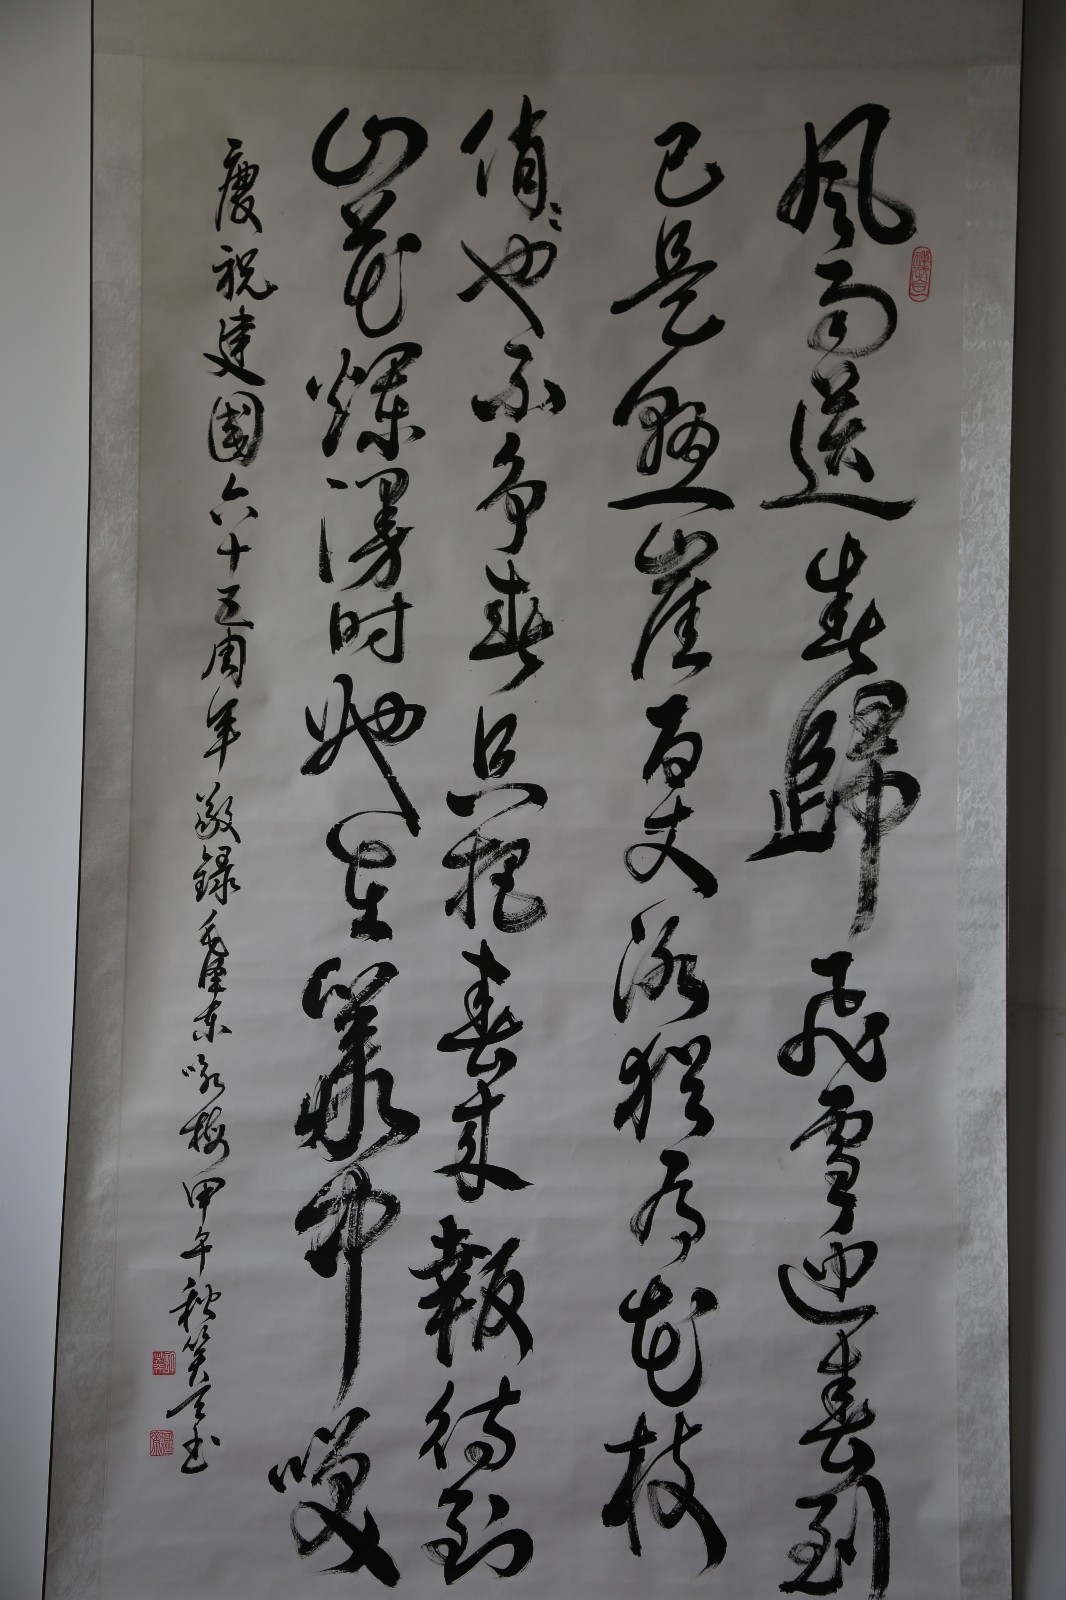 風雨送春歸飛雪迎春到
已是懸崖百丈冰猶有花枝
俏〻也不争春只把春来報待到
山花爛漫时她在叢中咲
慶祝建國六十五周年敬録毛澤东咏梅甲午秋笑天书